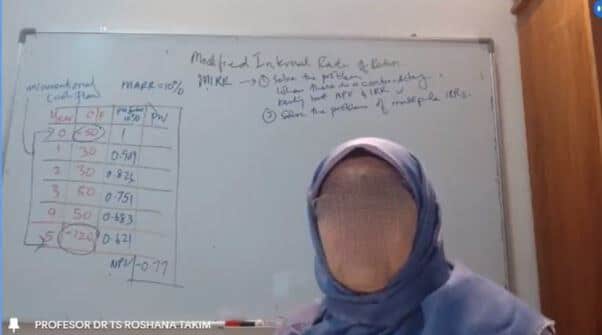 Modified Internal Rate of Return
MIRR → ① Solve the problem
When there is a contradictory
NPV & IRR
② Solve the problem of multiple IRRs.
unconventional
cashflow
MARR=10%
Year C/F 10% PV
0 -50 1
1 30 0.909
2 30 0.826
3 50 0.751
4 50 0.683
5 -120 0.621
NPV -0.77
PROFESOR DR TS ROSHANA TAKIM